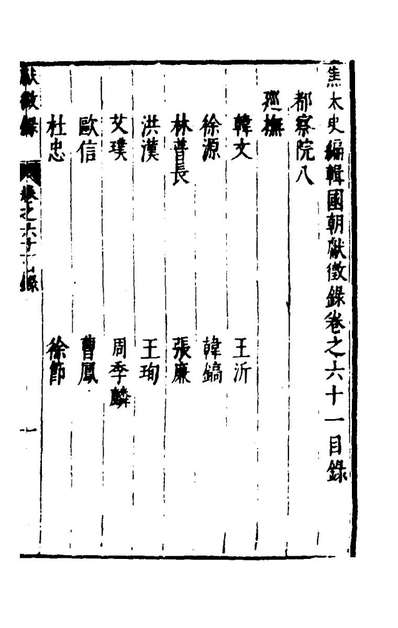 焦太史編輯國朝獻徵錄卷之六十一目錄
都察院八
廵撫
韓文 王沂
徐源 韓鎬
林普長 張廉
洪漢 王珣
艾璞 周季麟
歐信 曹鳳
杜忠 徐節
獻徵錄 卷之六十一目錄 一